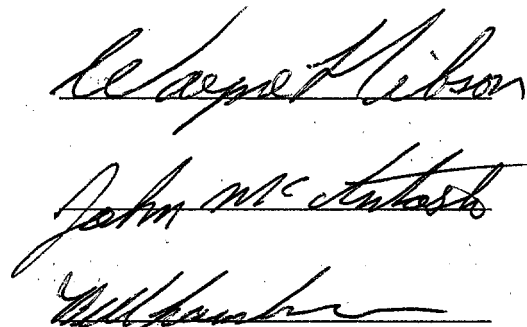 Wayne Gibson
John Mc Intosh